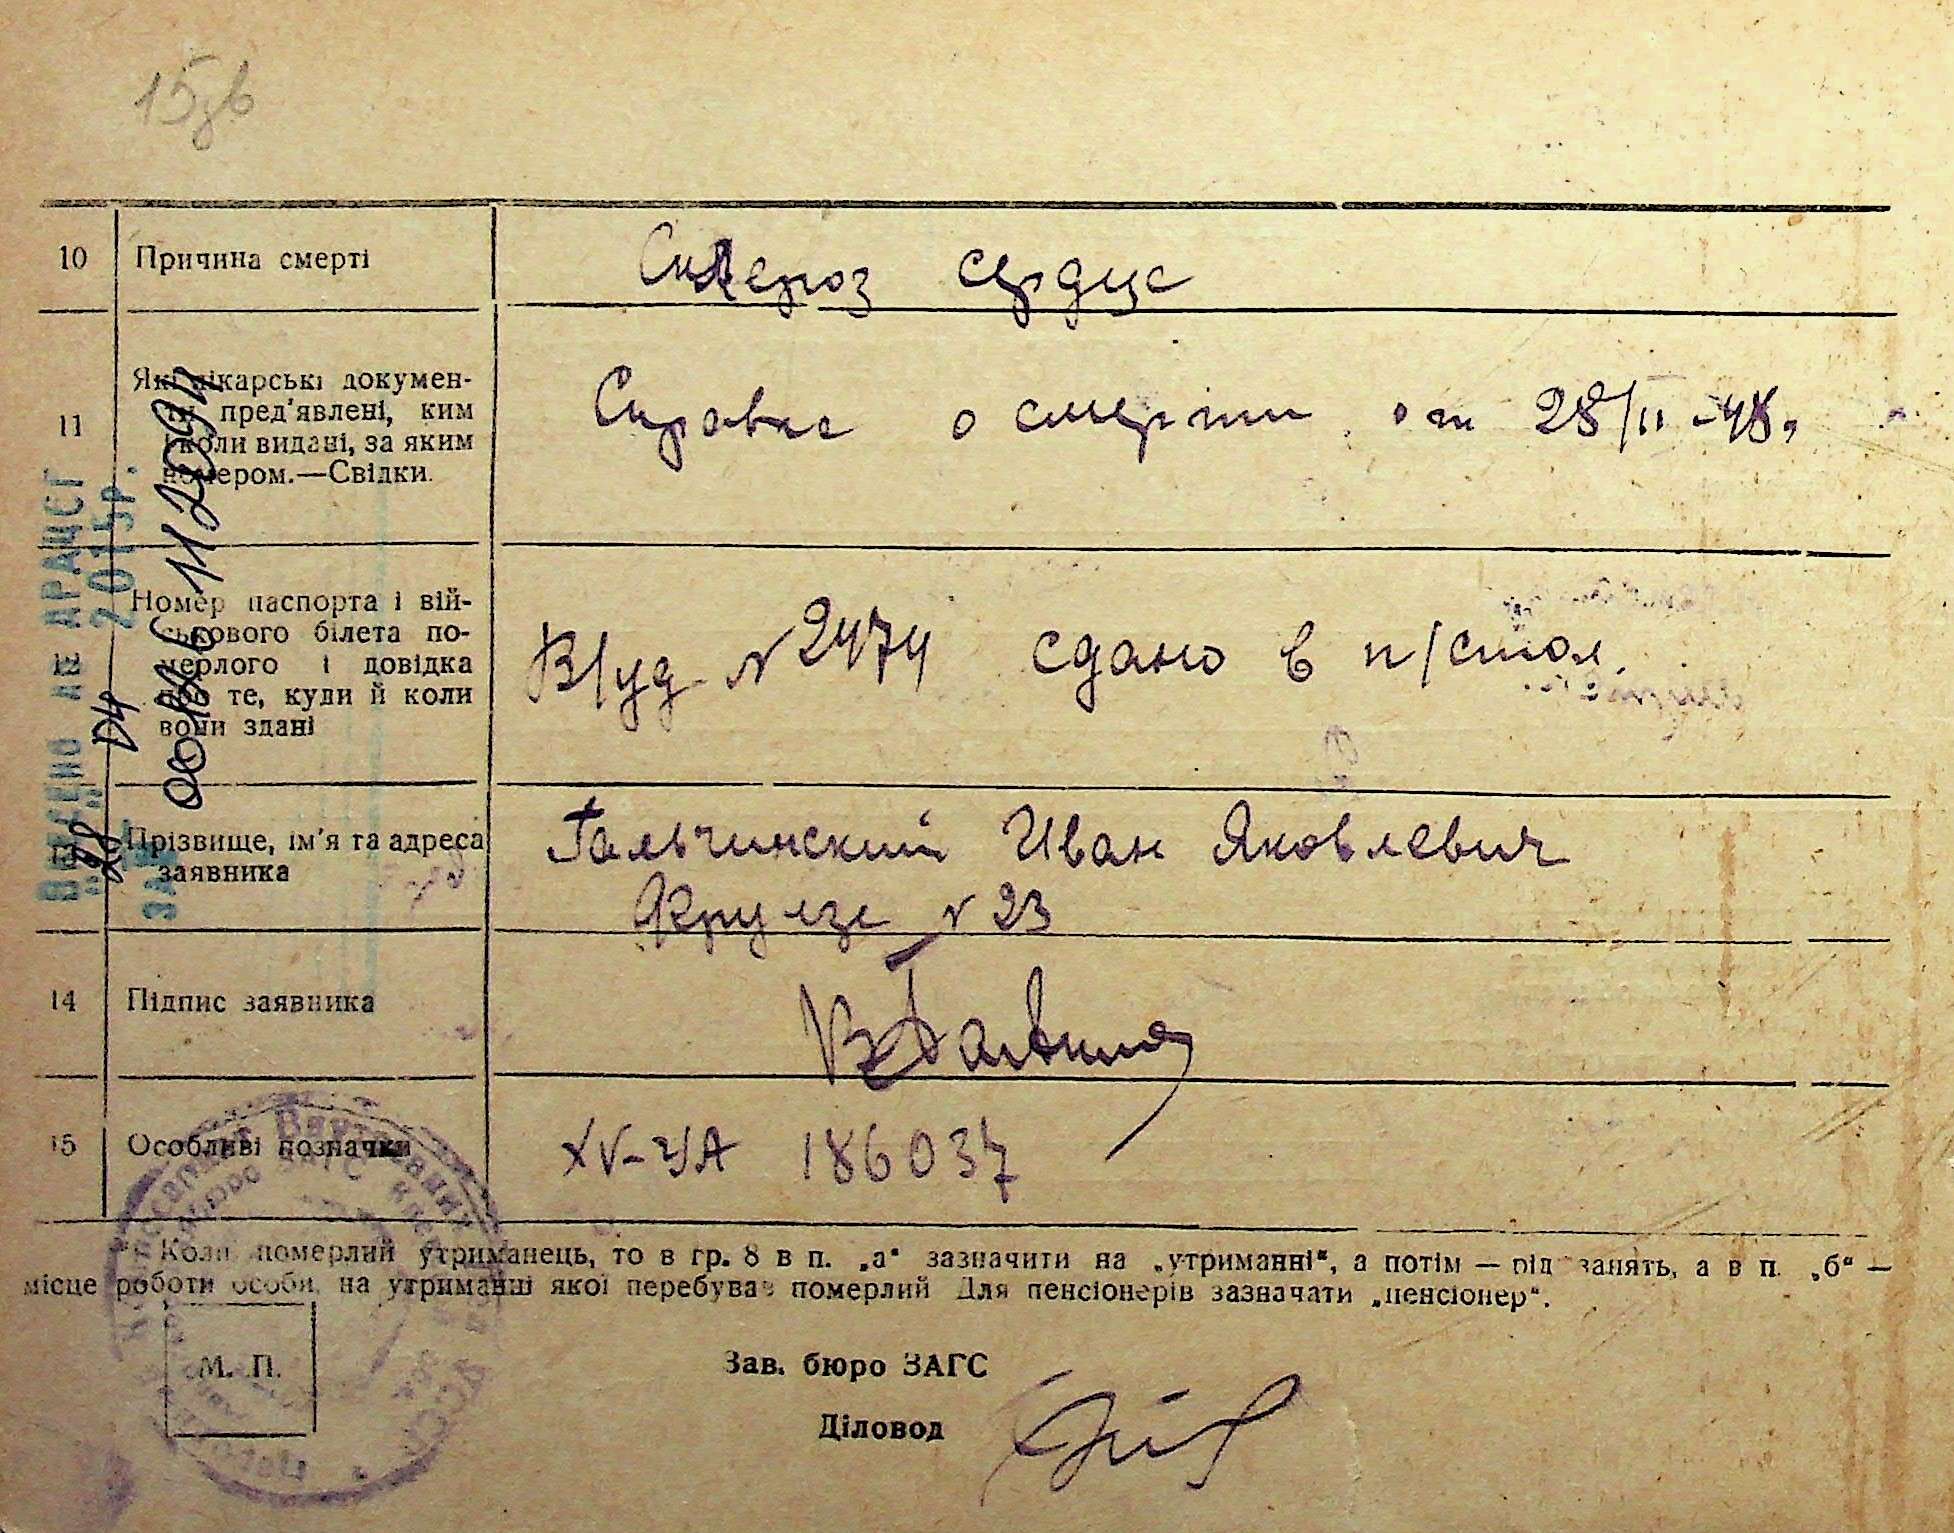 15зв
10 Причина смерті Склероз сердце
11 Які лікарські докумен-
ти пред'явлені, ким
і коли видані, за яким
номером.—Свідки.
Справка о смерти от 28/II-48г
12 Номер паспорта і вій-
ськового білета по-
мерлого і довідка
про те, куди й коли
вони здані
В/уд №2474 сдано в п/стол.
13 Прізвище, ім'я та адреса
заявника
Гальчинский Иван Яковлевич
Фрунзе №23
14 Підпис заявника
15 Особливі позначки XV-УА 186037
Коли померлий утриманець, то в гр. 8 в п. „а“ зазначити на „утриманні“, а потім — рід занять, а в п. „б“ —
місце роботи особи, на утриманні якої перебував померлий Для пенсіонерів зазначати „пенсіонер“.
М. П.
Зав. бюро ЗАГС
Діловод
Внесено АВ ДРАЦСГ
2015р.
00116112309